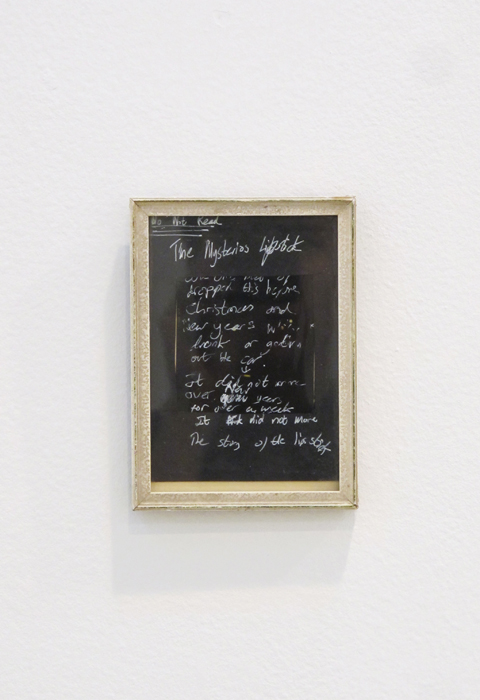 Do Not Read
The Mysterios Lipstick
dropped this before
Christmas and
New years
drunk or
out the car.
It did not move
over New years
for over a week
It did not move
The story of the lipstick